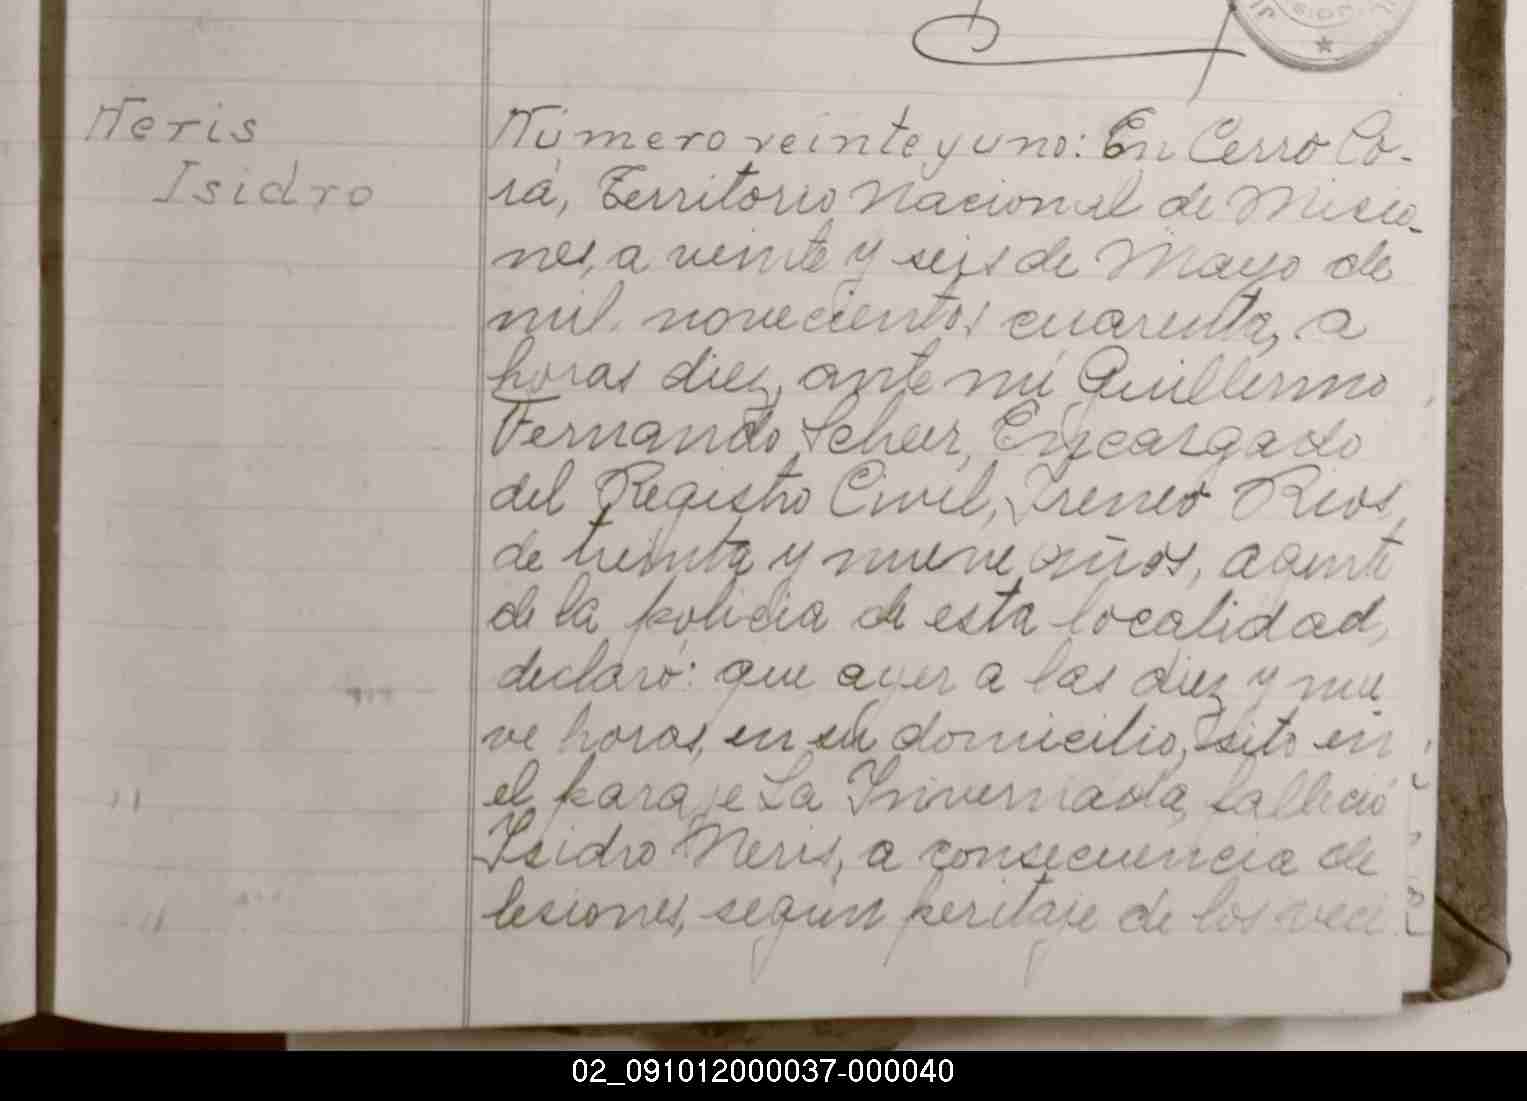 Neris
Isidro
Número veinte y uno: En Cerro Co-
rá, Territorio Nacional de Misio-
nes, a veinte y seis de Mayo de
mil novecientos cuarenta, a
horas diez, ante mí Guillermo
Fernando Scheer, Encargado
del Registro Civil, Ireneo Rios,
de treinta y nueve años, agente
de la policia de esta localidad,
declaró: que ayer a las diez y nue
ve horas, en su domicilio, sito en
el paraje La Invernada, falleció
Isidro Neris, a consecuencia de
lesiones, según peritaje de los veci
02_091012000037-000040